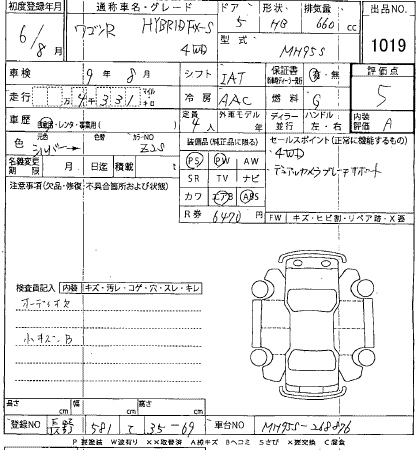 初度登録年月 通称車名・グレード ドア 形状 排気量 出品NO.
6/8月 ワゴンR HYBRID FX-S 5 HB 660 cc
4WD
型式 MH95S 1019
車検 9年 8月 シフト IAT 保証書 有・無 評価点
走行 万4千331 マイル キロ 冷房 AAC 燃料 G 5
車歴 自家用・レンタ・事業用( ) 定員 4人 外車モデル ディーラー 並行 ハンドル 左・右 内装評価 A
色 元色 シルバー 色替 カラーNO ZJS 装備品(純正品に限る) セールスポイント(正常に機能するもの)
名義変更期限 月 日迄 積載 t PS PW AW 4WD
注意事項(欠品・修復・不具合箇所および状態) SR TV ナビ デュアルカメラブレーキサポート
カワ エアB ABS
R券 6470円 FW キズ・ヒビ割・リペア跡・X要
検査員記入 内装 キズ・汚レ・コゲ・穴・スレ・キレ
オーディオ欠
小キズ B
長さ cm 幅 cm 高さ cm
登録NO 長野 581 て 35-69 車台NO MH95S-268876
P 要塗装 W波有り XX取替済 A線キズ Bヘコミ Sさび X要交換 C腐食